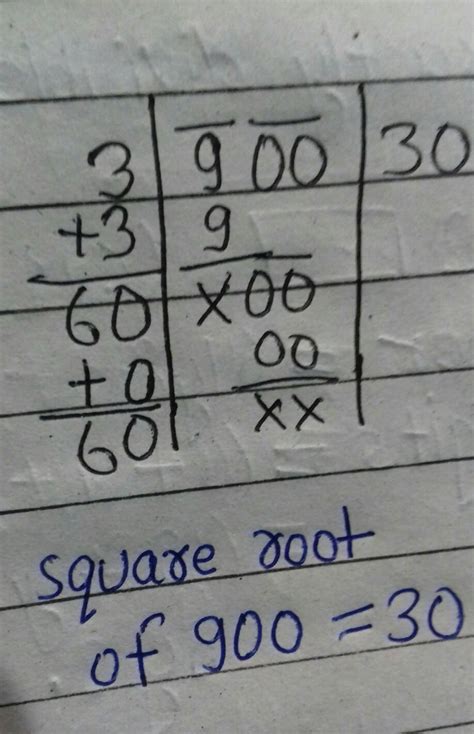 3 900 30
+3 9
60 x00
+0 00
60 xx
square root
of 900 = 30